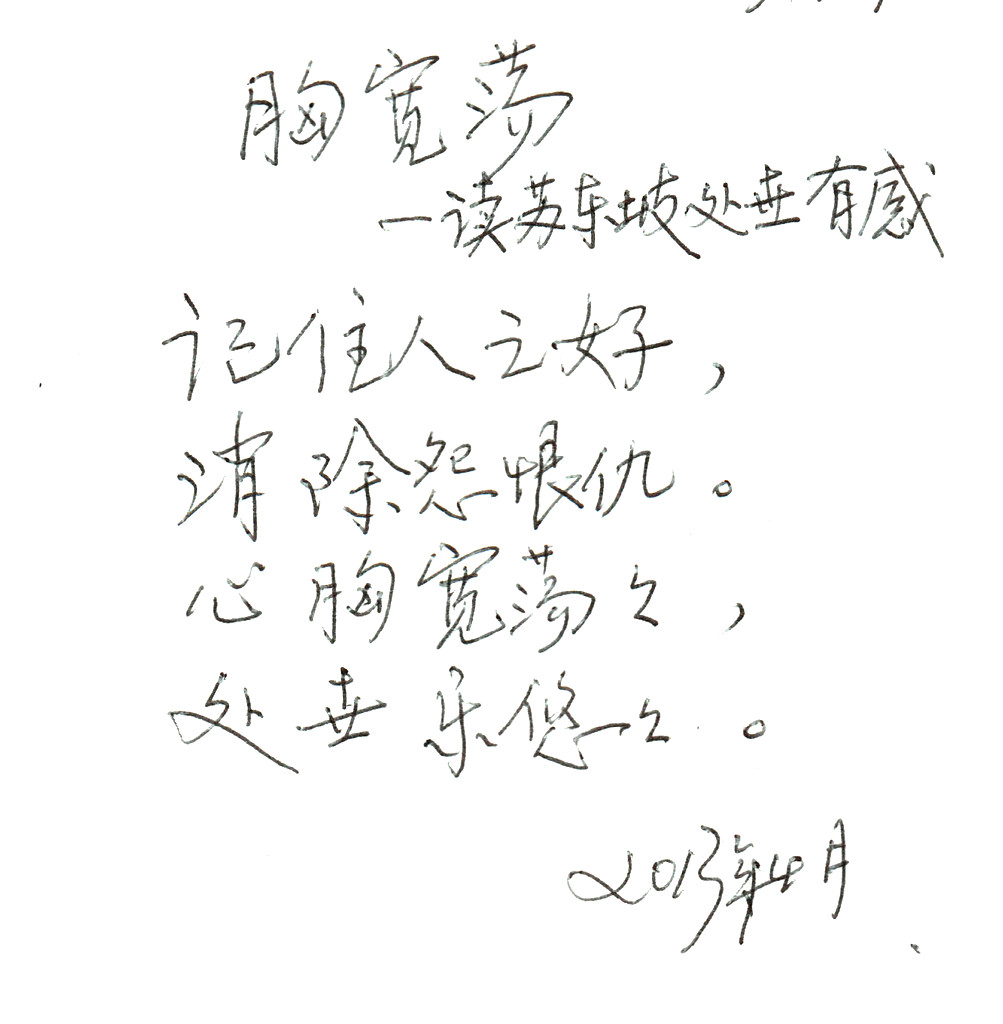 胸宽荡
—读苏东坡处世有感
记住人之好，
消除怨恨仇。
心胸宽荡々，
处世乐悠々。
2013年4月